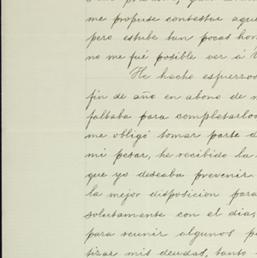 me propuse contestar aque
pero estube tan pocas hor
no me fué posible ver á
He hecho esfuerzos
fin de año en abono de
faltaba para completarlo
me obligó tomar parte d
mi pesar, he recibido la
que yo deseaba prevenir
la mejor disposicion para
solutamente con el dia,
para reunir algunos p
tizar mis deudas, tanto